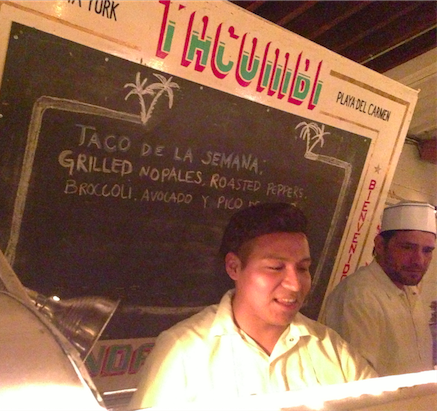 YORK
TACOMBI
PLAYA DEL CARMEN
TACO DE LA SEMANA.
GRILLED NOPALES. ROASTED PEPPERS.
BROCCOLI, AVOCADO Y PICO
BIENVENID